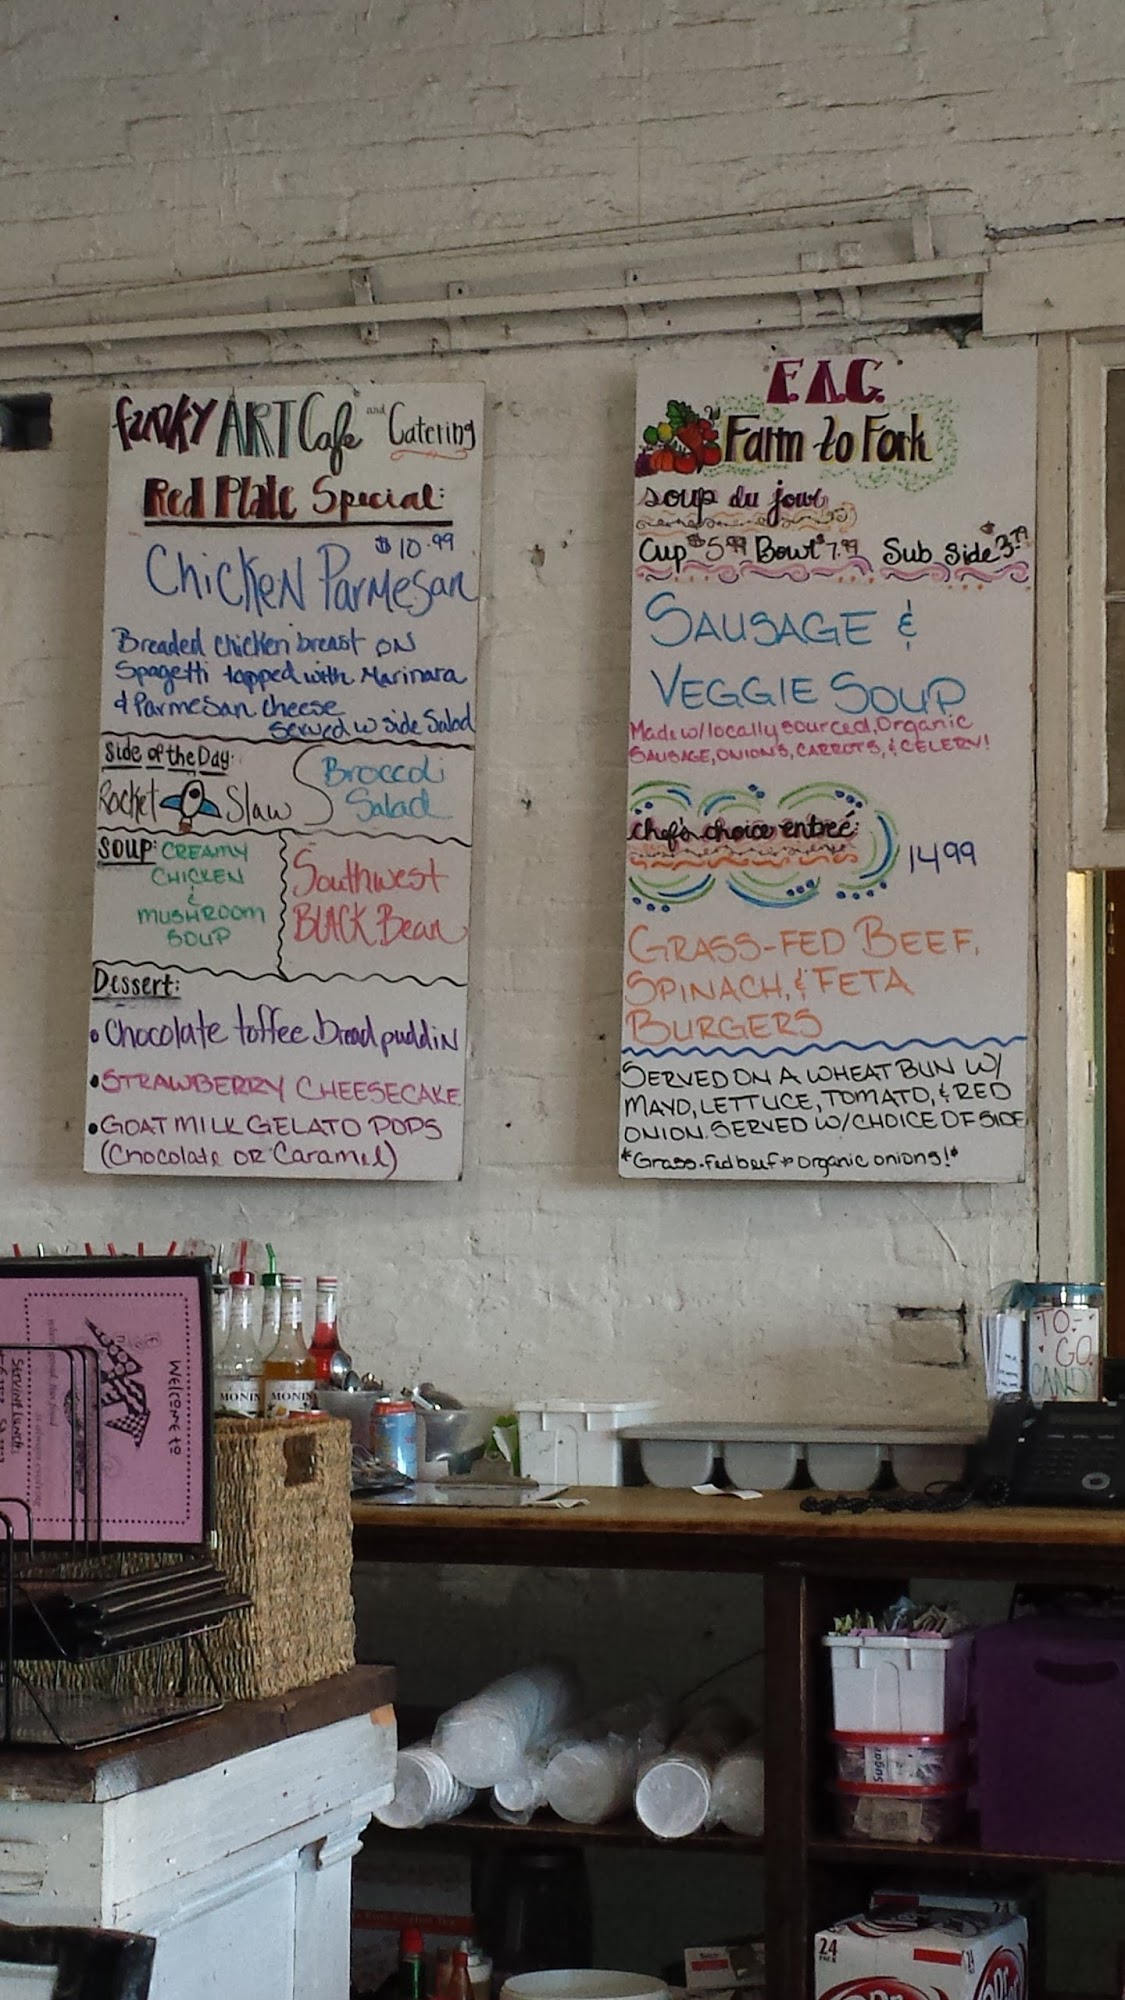 funky ART Cafe and Catering
Red Plate Special:
$10.99
Chicken Parmesan
Breaded chicken breast ON
Spagetti topped with Marinara
& Parmesan cheese
Served w side Salad
Side of the Day:
Rocket Slaw
Broccoli
Salad
Soup: CREAMY
CHICKEN
&
MUSHROOM
SOUP
Southwest
BLACK Bean
Dessert:
• Chocolate toffee bread puddin
• STRAWBERRY CHEESECAKE
• GOAT MILK GELATO POPS
(Chocolate OR Caramel)
F.A.C.
Farm to Fork
soup du jour
Cup $5.99 Bowl $7.99 Sub Side $3.79
SAUSAGE &
VEGGIE SOUP
Made w/locally sourced, Organic
SAUSAGE, ONIONS, CARROTS, & CELERY!
chef's choice entreé:
14.99
GRASS-FED BEEF,
SPINACH, & FETA
BURGERS
SERVED ON A WHEAT BUN W/
MAYO, LETTUCE, TOMATO, & RED
ONION. SERVED W/ CHOICE OF SIDE
*Grass-fed beef & Organic onions!*
WELCOME TO
Serving Lunch:
MONIN
MONIN
TO-
GO
CANDY
Sugar
24
PACK
24